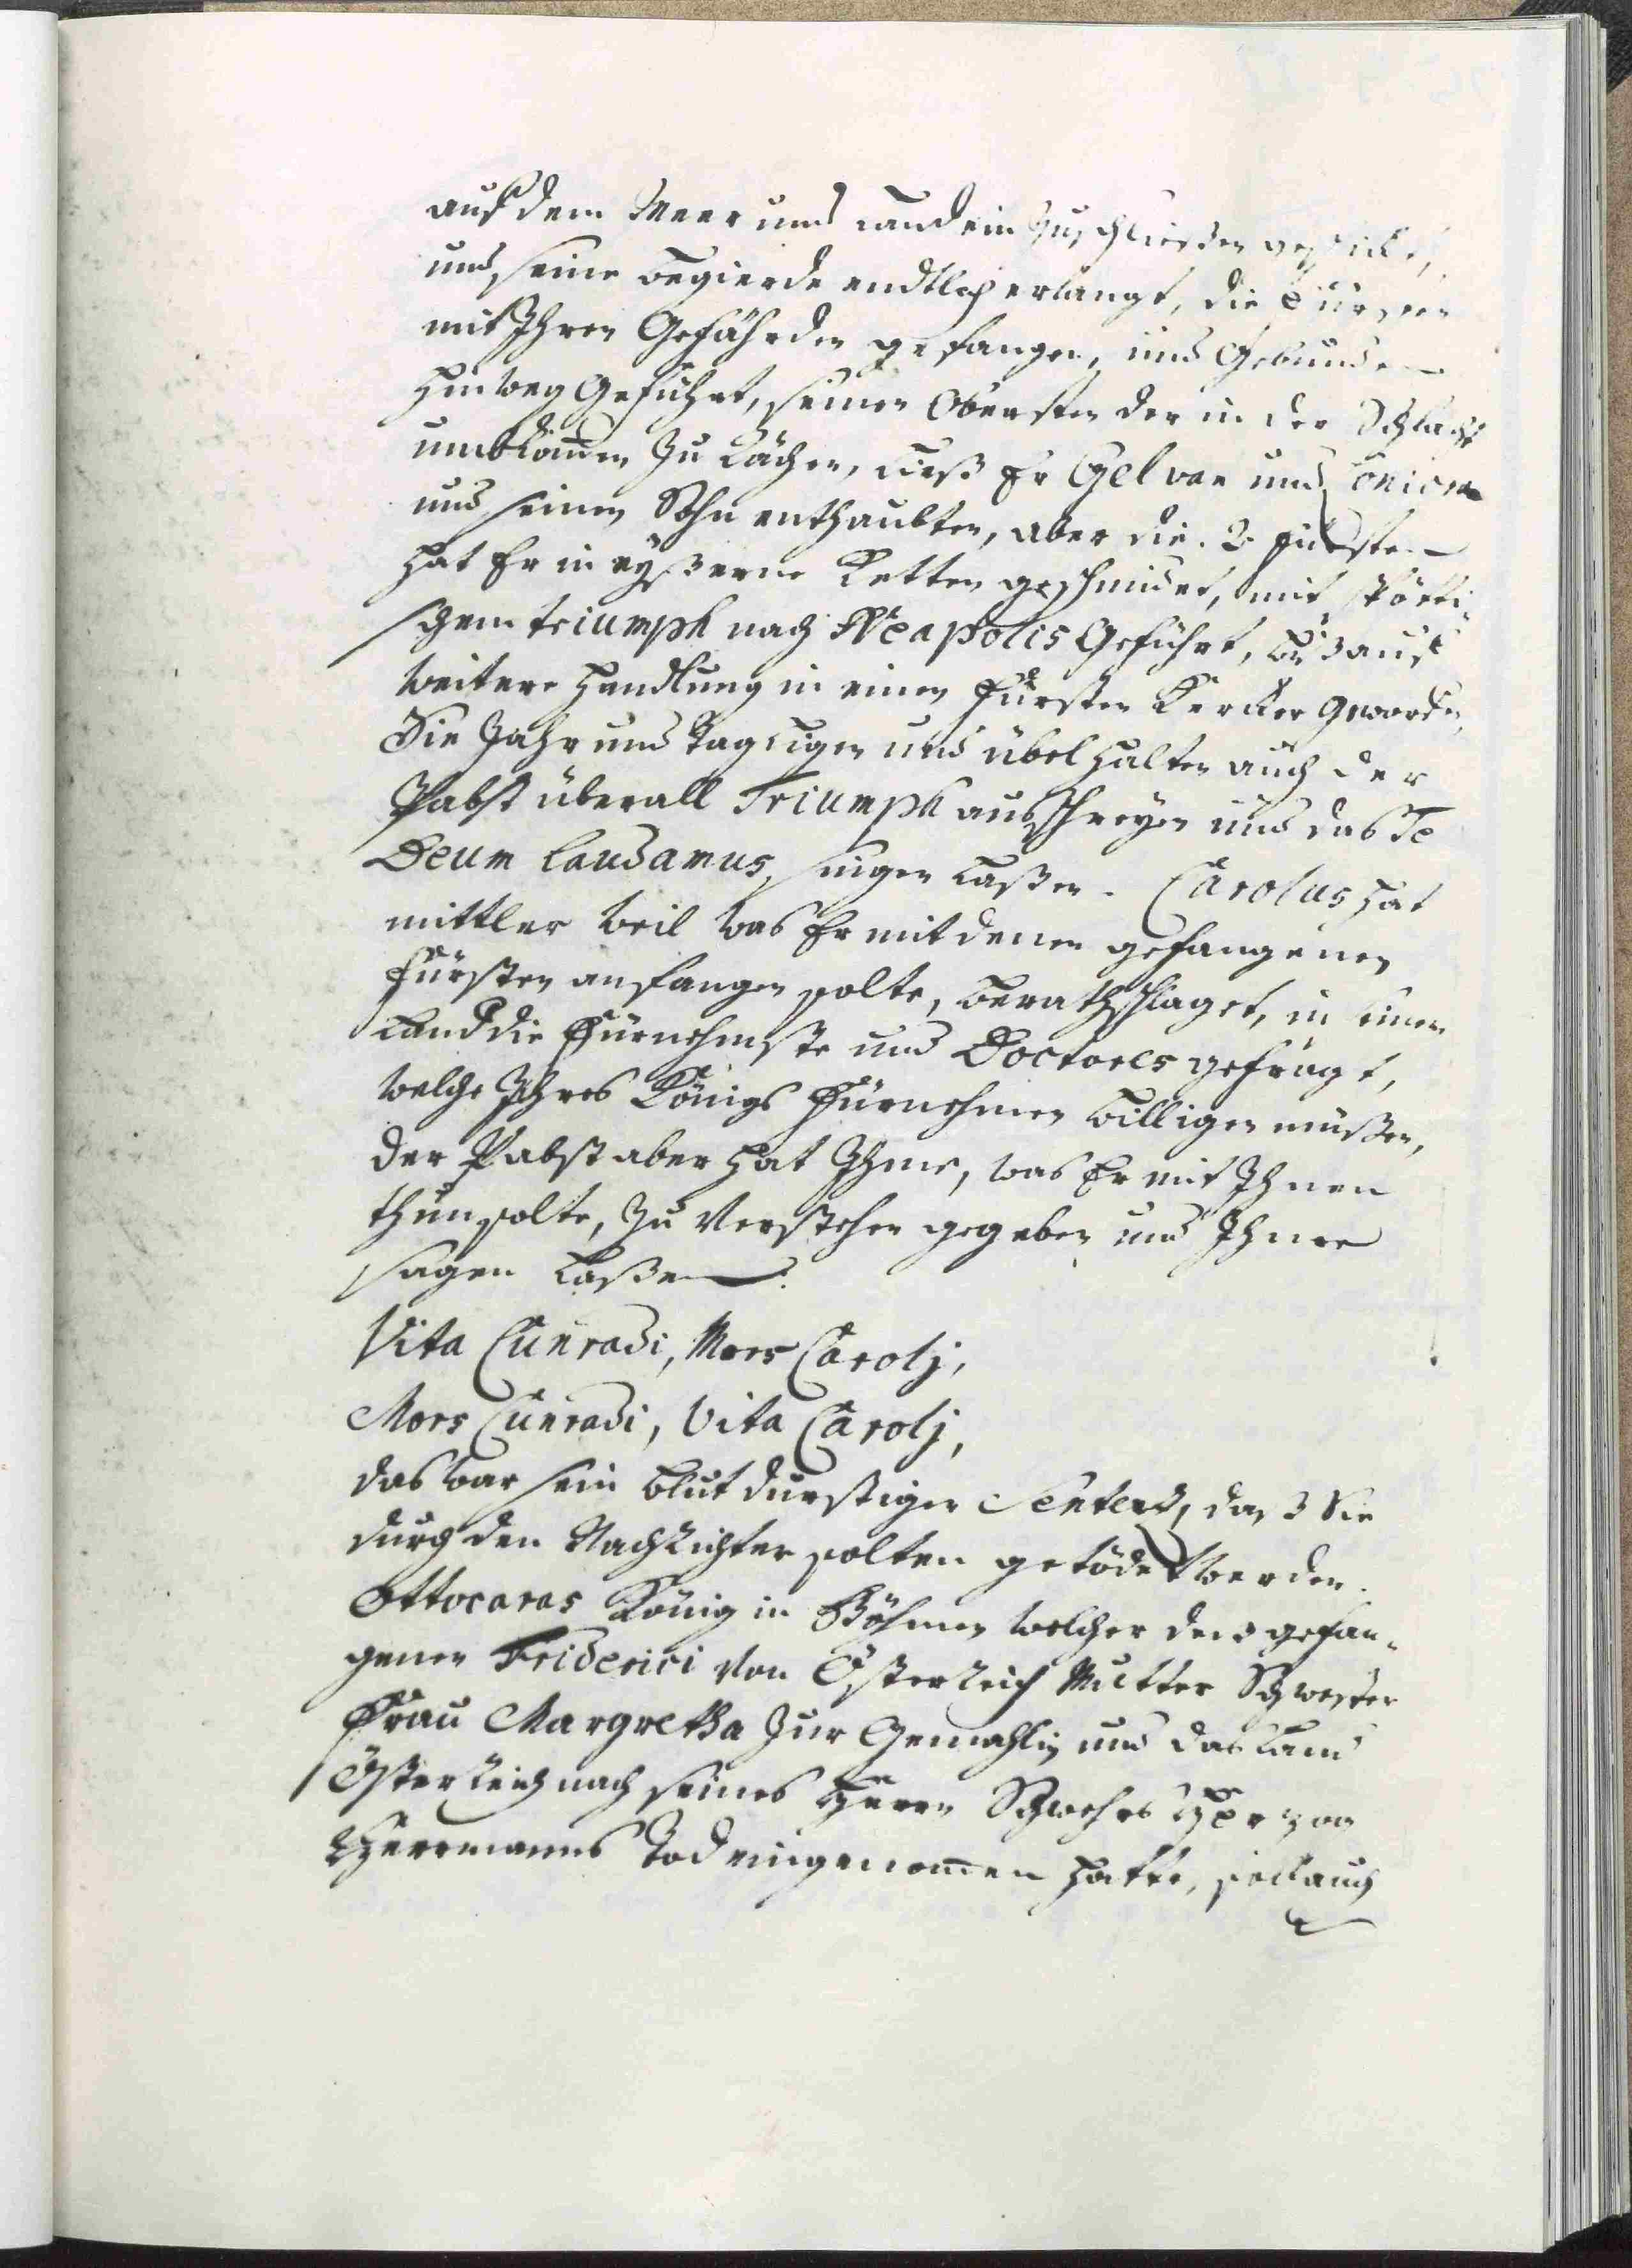 auf dem Meer und Land ein zuschliessen geschickt,
und seine Begierde endtlich erlangt, die Fürsten
mit Ihren Gefährden gefangen, und Gebunden
hinweg Geführt, seinen Obersten der in der Schlacht
umbkom̄en zu Rächen, ließ Er Gelvan und
und seinen Sohn enthaubten, aber die 2 Fürsten
hat Er in eyßerne Ketten geschmidet, mit spötti„
schem triumph nach Neapolis Geführt, biß auf
weitere Handlung in einen Fürsten Kercker Geworden,
Sie Jahr und Tag ligen und übel halten auch der
Pabst überall Triumph ausschreyen und das Te
Deum laudamus, singen laßen. Carolus hat
mittler weil was Er mit denen gefangenen
Fürsten anfangen solte, berathschlaget, in seinem
Land die Fürnehmste und Doctores gefragt,
welche Ihres Königs Fürnehmen billigen müßen,
der Pabst aber hat Ihme, was Er mit Ihnen
thun solte, zu Verstehen gegeben und Ihme
sagen laßen.
Vita Cunradi, Mors Carolj,
Mors Cunradi, Vita Carolj,
das war sein blutdurstiger Sentenz, daß Sie
durch den Nachrichter solten getödet werden.
Ottocaras König in Böhmen welcher des gefan„
genen Friderici von Österreich Mutter Schwester
Frau Margretha zur Gemahlin und das Land
Österreich nach seines Herrn Schwehrs Herzog
Herrmanns Tod eingenom̄en hatte, soll auch